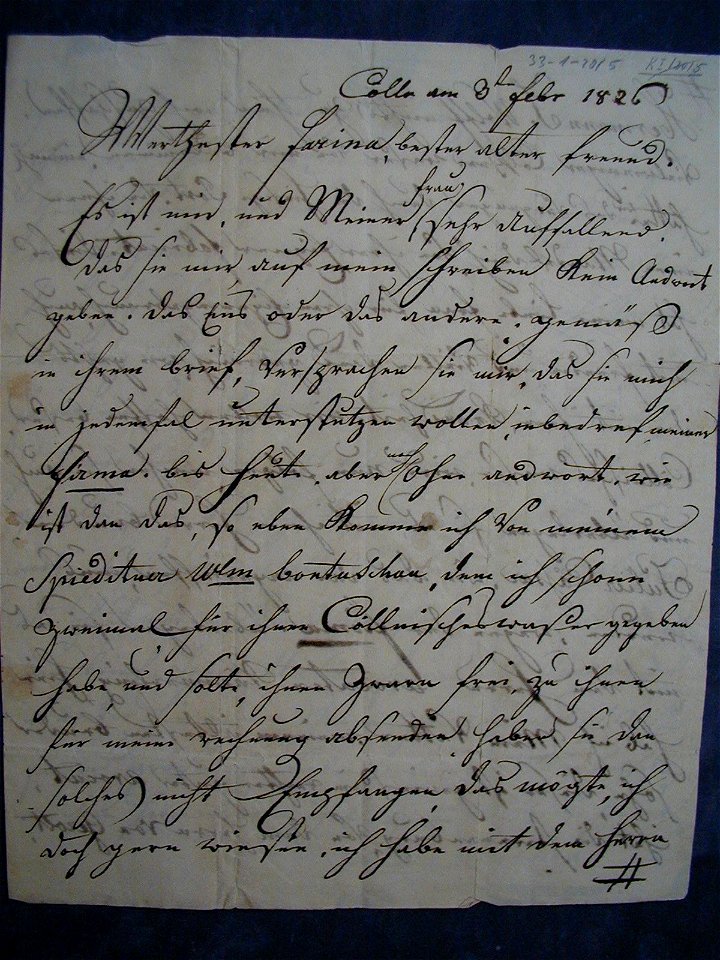 33-1-2015 KI/2015
Cölln am 3t. febr 1826
Werthester farina, bester alter freund.
frau
Es ist mir, und Meiner sehr Auffallend.
das sie mir, auf mein schreiben Kein Andwort
geben. das Eins oder das andere. gemäß
in ihrem brief, Versprachen sie mir, das sie mich
in jedemfal unterstutzen wollen, inbedref meiner
firma. bis heute, aber ohne andwort, wie
ist dan das, so eben Komme ich von meinem
Spieditner Wlm bontuschau, dem ich schonn
zweimal für ihnen Cöllnischeswaßer gegeben
habe, und solte, ihnen zwarn frei, zu ihnen
für meine rechnung absenden haben sie dan
solches nicht Empfangen, das mögte, ich
doch gern wießen, ich habe mit dem herrn